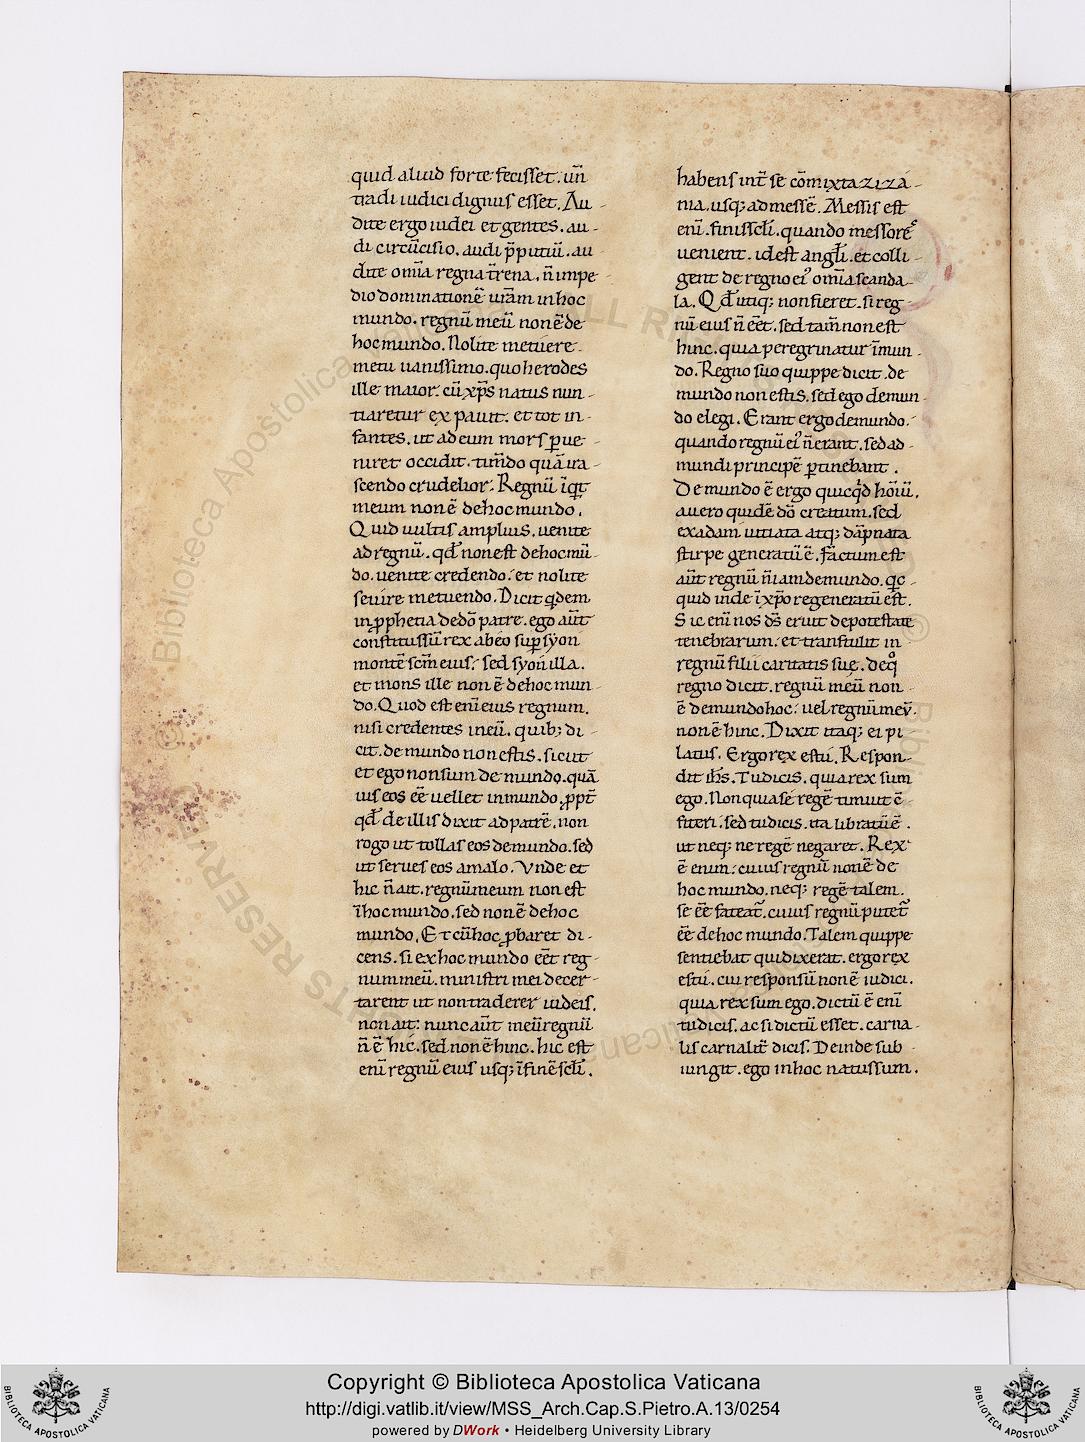 quid aliud forte fecisset. uñ
tradi iudici dignus esset. Au
dite ergo iudei et gentes. au-
di circũcisio. audi p̃putiũ. au
dite om̃ia regna t̃rena. ñ impe
dio dominationẽ ur̃am in hoc
mundo. regnũ meũ non ẽ de
hoc mundo. Nolite metuere
metu uanissimo. quo herodes
ille maior. cũ xp̃s natus nun-
tiaretur expauit. et tot in-
fantes. ut ad eum mors ꝑue-
niret occidit. tim̃do quã ira-
scendo crudelior. Regnũ ĩqͥt
meum non ẽ de hoc mundo.
Quid uultis amplius. uenite
ad regnũ. qd̃ non est de hoc mũ
do. uenite credendo. et nolite
seuire metuendo. Dicit qͥdem
in ꝓphetia de dõ patre. ego aũt
constitus sũ rex ab eo suꝑ syon
montẽ scm̃ eius. sed syon illa.
et mons ille non ẽ de hoc mun-
do. Quod est enĩ eius regnum.
nisi credentes in eũ. quib; di-
cit. de mundo non estis. sicut
et ego non sum de mundo. quã
uis eos eẽ uellet in mundo. ꝓpt̃
qd̃ de illis dixit ad patrẽ. non
rogo ut tollas eos de mundo. sed
ut serues eos a malo. Vnde et
hic ñ ait. regnũ meum non est
ĩ hoc mundo. sed non ẽ de hoc
mundo. Et cũ hoc ꝓbaret di-
cens. si ex hoc mundo eẽt reg-
num meũ. ministri mei decer-
tarent ut non traderer iudeis.
non ait: nunc aũt meũ regnũ
ñ ẽ hic. sed non ẽ hinc. hic est
enĩ regnũ eius usq; ĩ finẽ scl̃i.
habens int̃ se cõmixta ziza-
nia. usq; ad messẽ. Messis est
enĩ. finis scl̃i. quando messores
uenient. id est angl̃i. et colli-
gent de regno eiꝰ om̃ia scanda-
la. Qd̃ utiq; non fieret. si reg-
nũ eius ñ eẽt. sed tam̃ non est
hinc. quia peregrinatur ĩ mun-
do. Regno suo quippe dicit. de
mundo non estis. sed ego de mun-
do elegi. Erant ergo de mundo.
quando regnũ eiꝰ ñ erant. sed ad
mundi principẽ ꝑtinebant.
De mundo ẽ ergo quicqͥd hõiũ.
a uero quidẽ dõ creatum. sed
ex adam uitiata atq; dãpnata
stirpe generatũ ẽ. Factum est
aũt regnũ ñ iam de mundo. qͥc-
quid inde ĩ xp̃o regeneratũ est.
Sic enĩ nos dš eruit de potestate
tenebrarum. et transtulit in
regnũ filii caritatis suę. de qͦ
regno dicit. regnũ meũ non
ẽ de mundo hoc. uel regnũ meũ.
non ẽ hinc. Dixit itaq; ei pi
latus. Ergo rex es tu. Respon-
dit ih̃s. Tu dicis. quia rex sum
ego. Non quia se regẽ timuit cõ-
fiteri. sed tu dicis. ita libratũ ẽ.
ut neq; ne regẽ negaret. Rex
ẽ enim. cuius regnũ non ẽ de
hoc mundo. neq; regẽ talem.
se eẽ fateat̃. cuius regnũ putet̃
eẽ de hoc mundo. Talem quippe
sentiebat qui dixerat. ergo rex
es tu. cui responsũ non ẽ iudici.
quia rex sum ego. dictũ ẽ enĩ
tu dicis. ac si dictũ esset. carna-
lis carnalit̃ dicis. Deinde sub-
iungit. ego in hoc natus sum.
Copyright © Biblioteca Apostolica Vaticana
http://digi.vatlib.it/view/MSS_Arch.Cap.S.Pietro.A.13/0254
powered by DWork • Heidelberg University Library